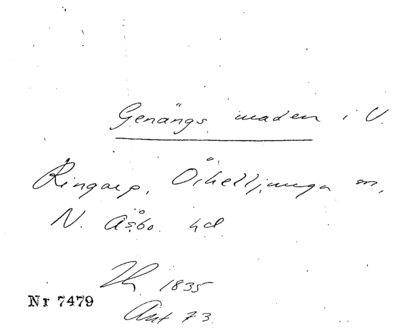 Genängs maden i V.
Ringarp, Örkelljunga sn,
N. Åsbo hd.
1835
Nr 7479
Akt 73